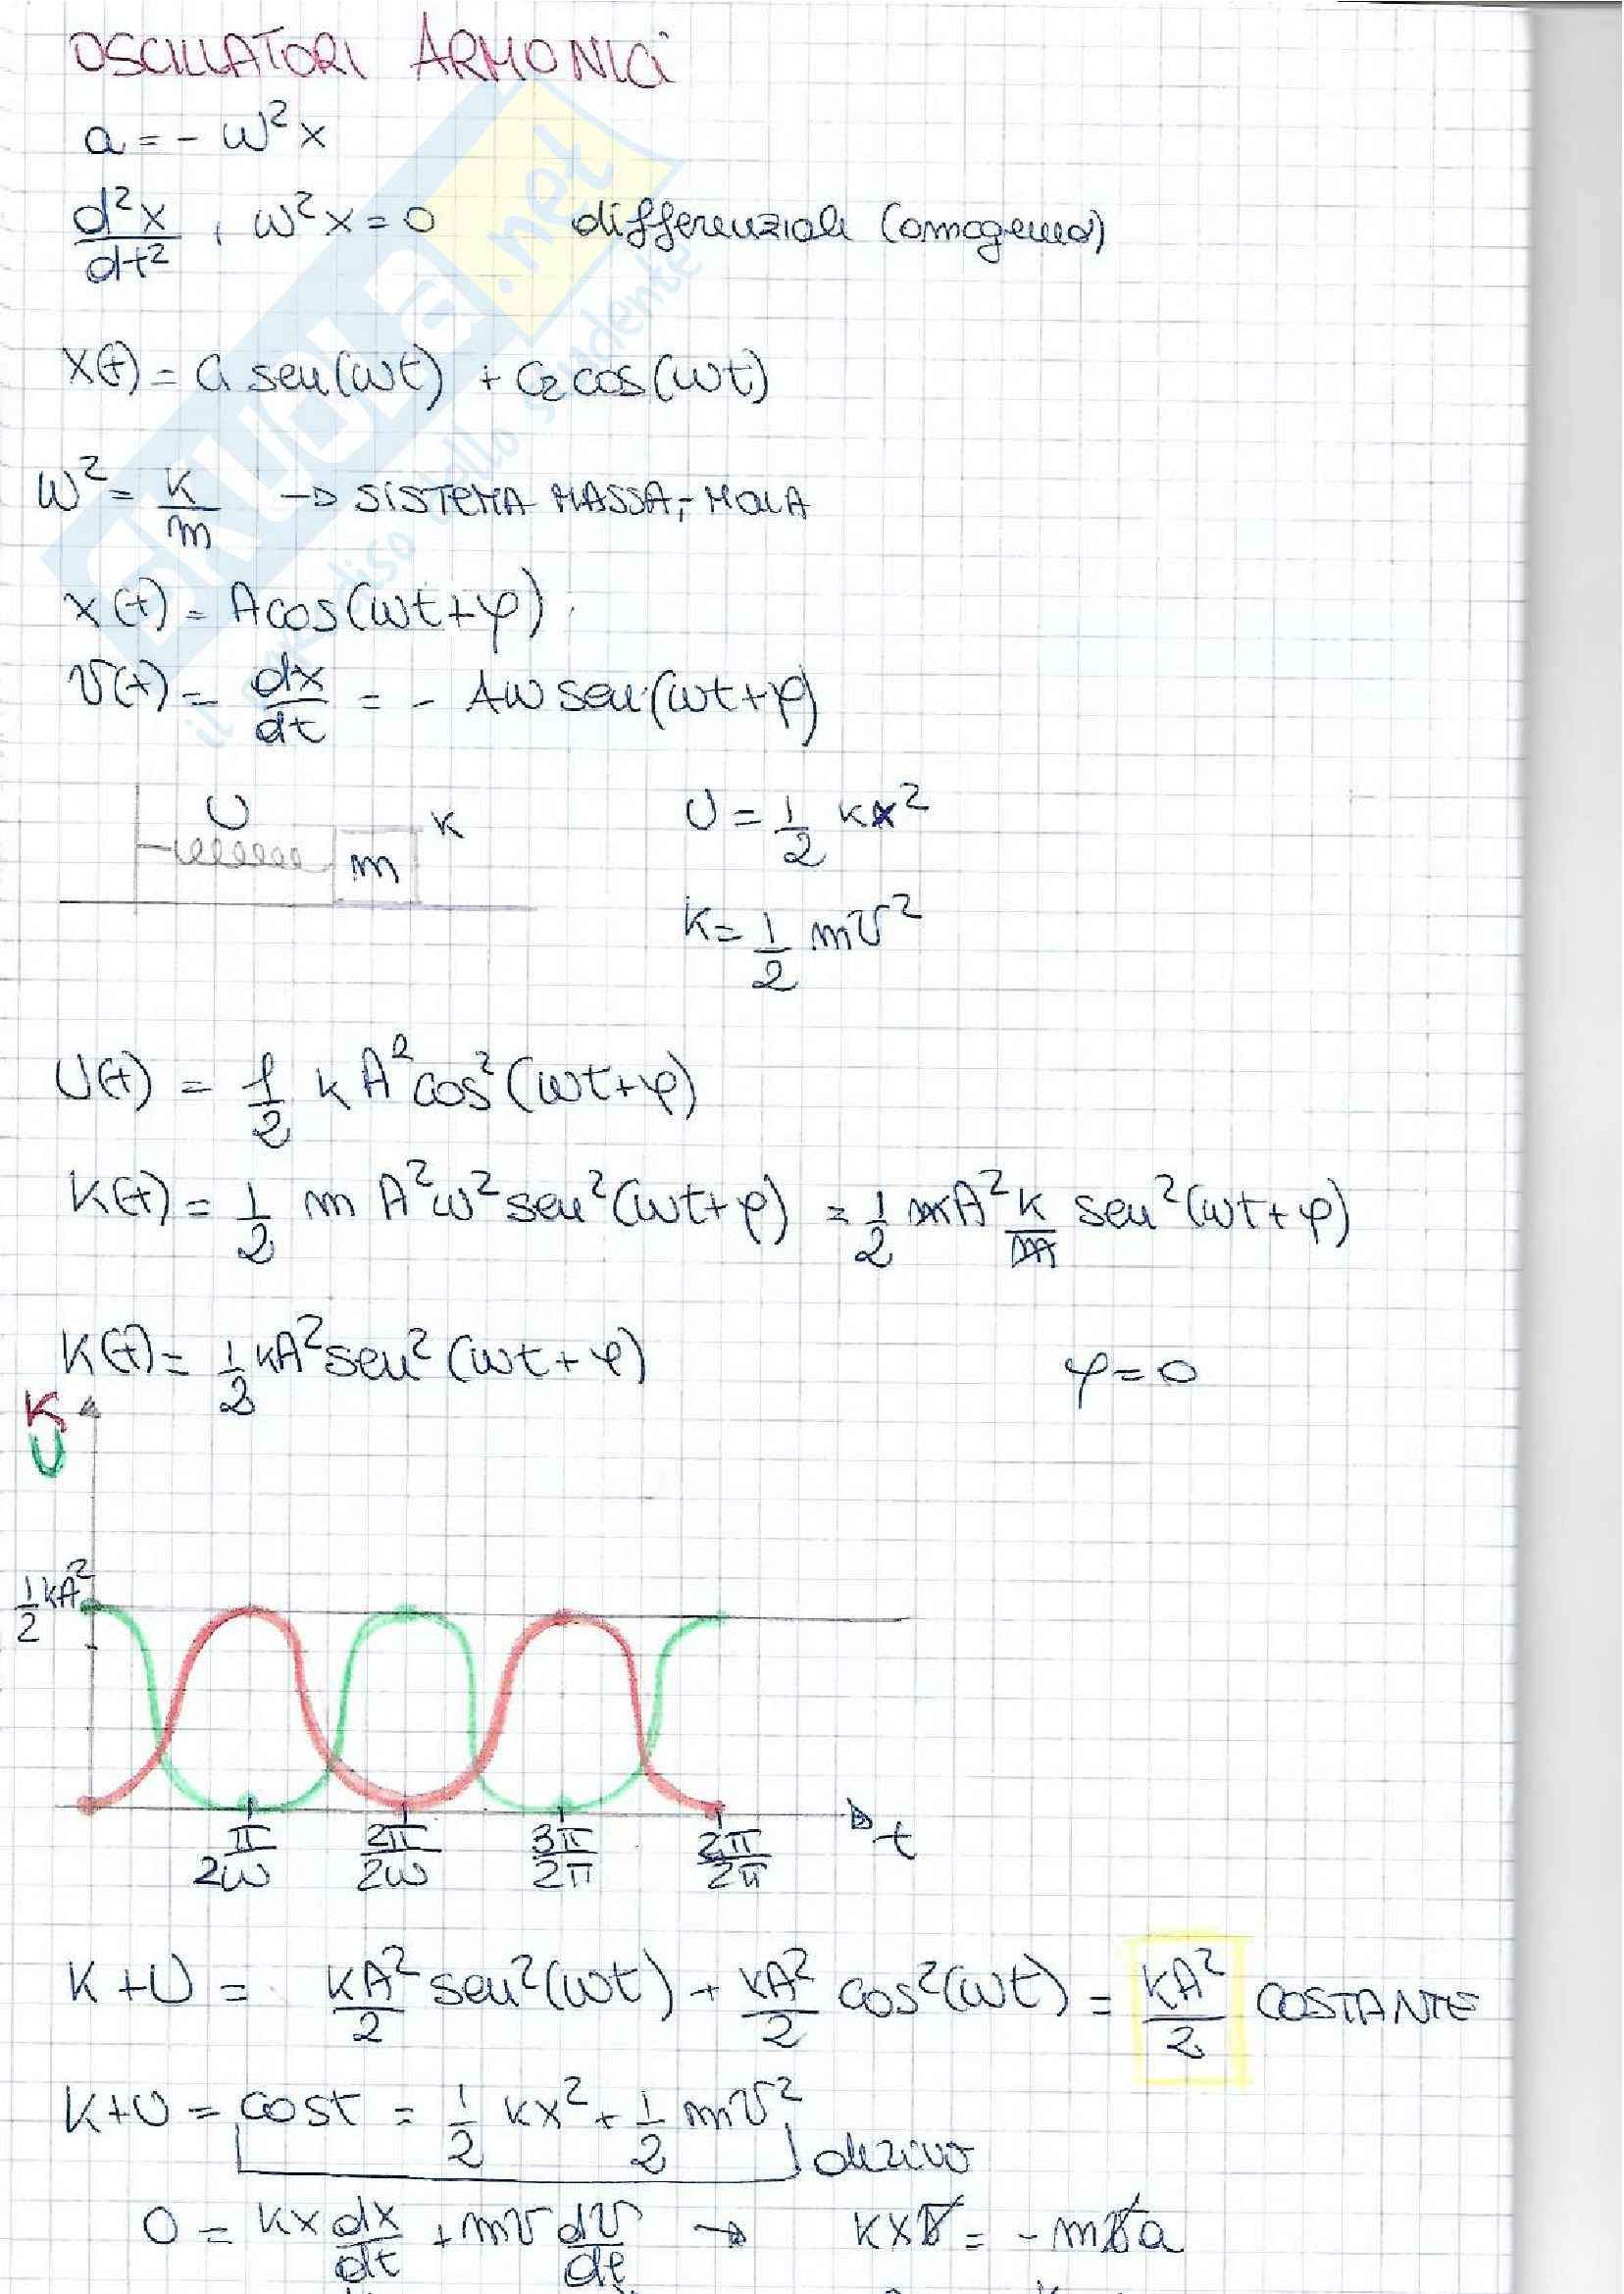 OSCILLATORI ARMONICI
a = - ω²x
d²x/dt² + ω²x = 0 differenziale (omogenea)
x(t) = C₁ sen(ωt) + C₂ cos(ωt)
ω² = k/m → SISTEMA MASSA-MOLLA
x(t) = A cos(ωt+φ)
v(t) = dx/dt = - Aω sen(ωt+φ)
U m K U = 1/2 kx²
K = 1/2 mv²
U(t) = 1/2 kA² cos²(ωt+φ)
K(t) = 1/2 m A²ω² sen²(ωt+φ) = 1/2 mA² k/m sen²(ωt+φ)
K(t) = 1/2 kA² sen²(ωt+φ) φ = 0
K
U
1/2 kA²
π/2ω 2π/2ω 3π/2π 2π/2π t
K + U = kA²/2 sen²(ωt) + kA²/2 cos²(ωt) = kA²/2 COSTANTE
K+U = cost = 1/2 kx² + 1/2 mv² derivo
0 = kx dx/dt + mv dv/dt → kxv = - mva
SKUOLA.net
il paradiso dello studente